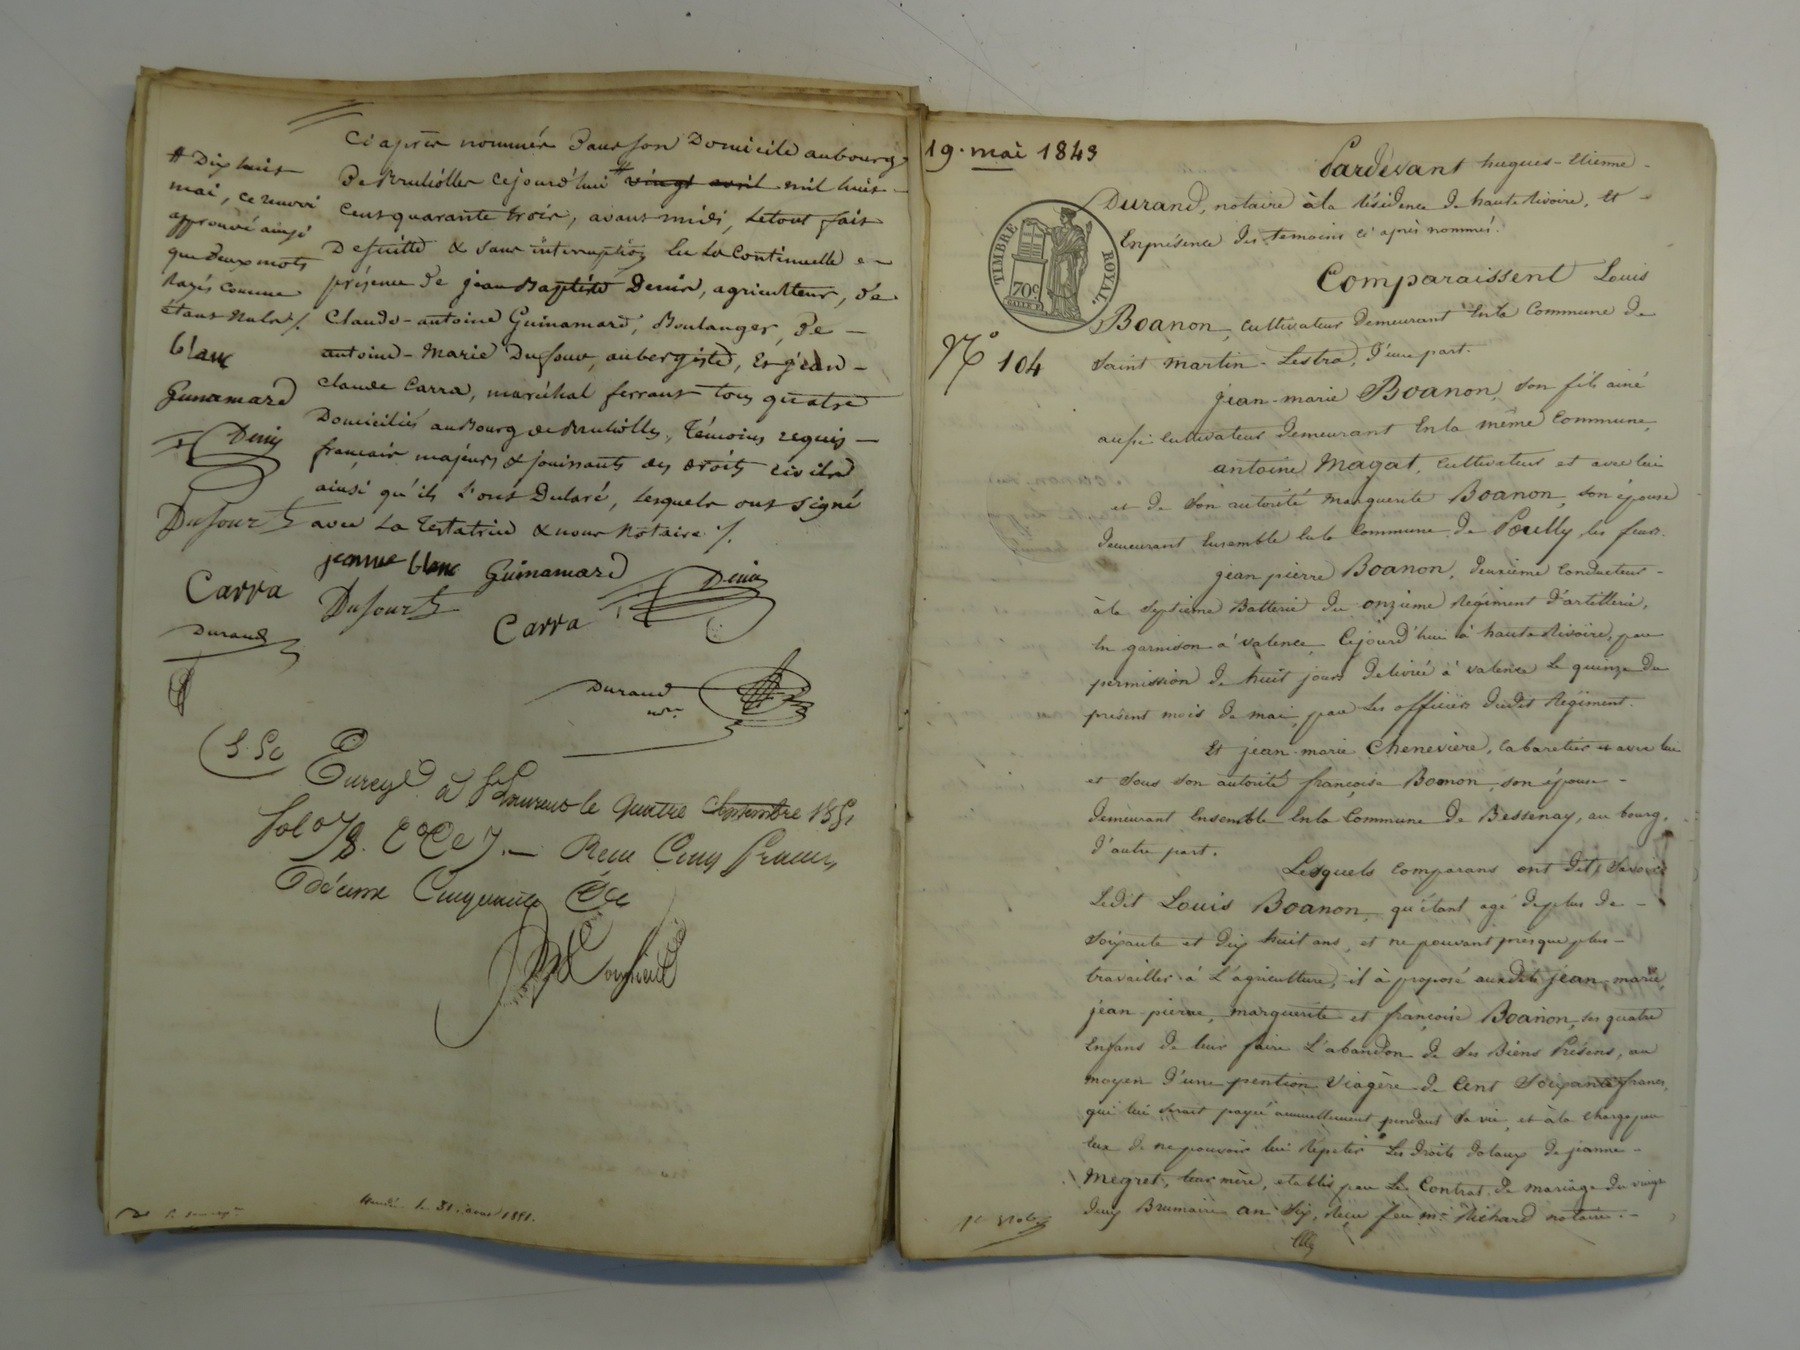 ci après nommés Dans son Domicile au bourg
De Brullioles cejourd'hui # vingt avril mil huit
Cent quarante trois, avant midi, le tout fait
De suitte & sans interruption lu La Continuelle
présence de jean Baptiste Denis, agriculteur, De
Claude-antoine Guinamard, Boulanger, De
antoine-Marie Dufour, aubergiste, Et jean
Claude Carra, maréchal ferrant tous quatre
Domiciliés au Bourg de Brullioles, Témoins requis
français majeurs & jouissants des droits civils
ainsi qu'ils L'ont Déclaré, Lesquels ont signé
avec La Testatrice & nous Notaire ./.
jeanne blanc Guinamard Denis
Dufour Carra
Durand
nre
# Dix huit
mai, ce renvoi
approuvé ainsi
que deux mots
Rayés comme
étant Nuls ./.
blanc
Guinamard
Denis
Dufour
Carra
Durand
5.50
Enreg.é à St Laurent le quatre Septembre 1851
fol 078. Reçu Cinq francs
Décime Cinquante
1851.
19. mai 1843
TIMBRE ROYAL
70c
No 104
Pardevant hugues-Etienne
Durand, notaire à la résidence de haute Rivoire, Et
En présence des témoins ci après nommés.
Comparaissent Louis
Boanon, cultivateur Demeurant En la Commune de
Saint Martin-Lestra, D'une part.
jean-marie Boanon, son fils ainé
aussi cultivateur demeurant En la même Commune,
antoine Magat, cultivateur et avec lui
et de Son autorité Marguerite Boanon, Son épouse
demeurant Ensemble En la Commune de Pouilly les feurs.
jean pierre Boanon, Deuxième conducteur
à la Septième Batterie du onzième Régiment d'artillerie,
En garnison à Valence, Cejourd'hui à haute Rivoire, par
permission de huit jours Délivrée à Valence Le quinze du
présent mois de mai, par Les officiers dudit Régiment.
Et jean-marie Chenevière, Cabaretier et avec lui
et sous Son autorité françoise Boanon, son épouse
demeurant Ensemble En la Commune de Bessenay, au bourg,
D'autre part.
Lesquels comparans ont dit, savoir
Ledit Louis Boanon, qu'étant agé de plus de
Soixante et dix huit ans, et ne pouvant presque plus
travailler à L'agriculture, il à proposé auxdits jean-marie,
jean pierre, marguerite et françoise Boanon, ses quatre
Enfans de leur faire L'abandon de Ses Biens Présens, au
moyen d'une pention Viagère de Cent Soixante francs,
qui lui serait payée annuellement pendant Sa vie, et à la charge par
Eux de ne pouvoir lui Répéter Les droits dotaux de jeanne
Megret, leur mère, etablis par Le Contrat de mariage du vingt
deux Brumaire an Six, Reçu feu me Richard notaire.